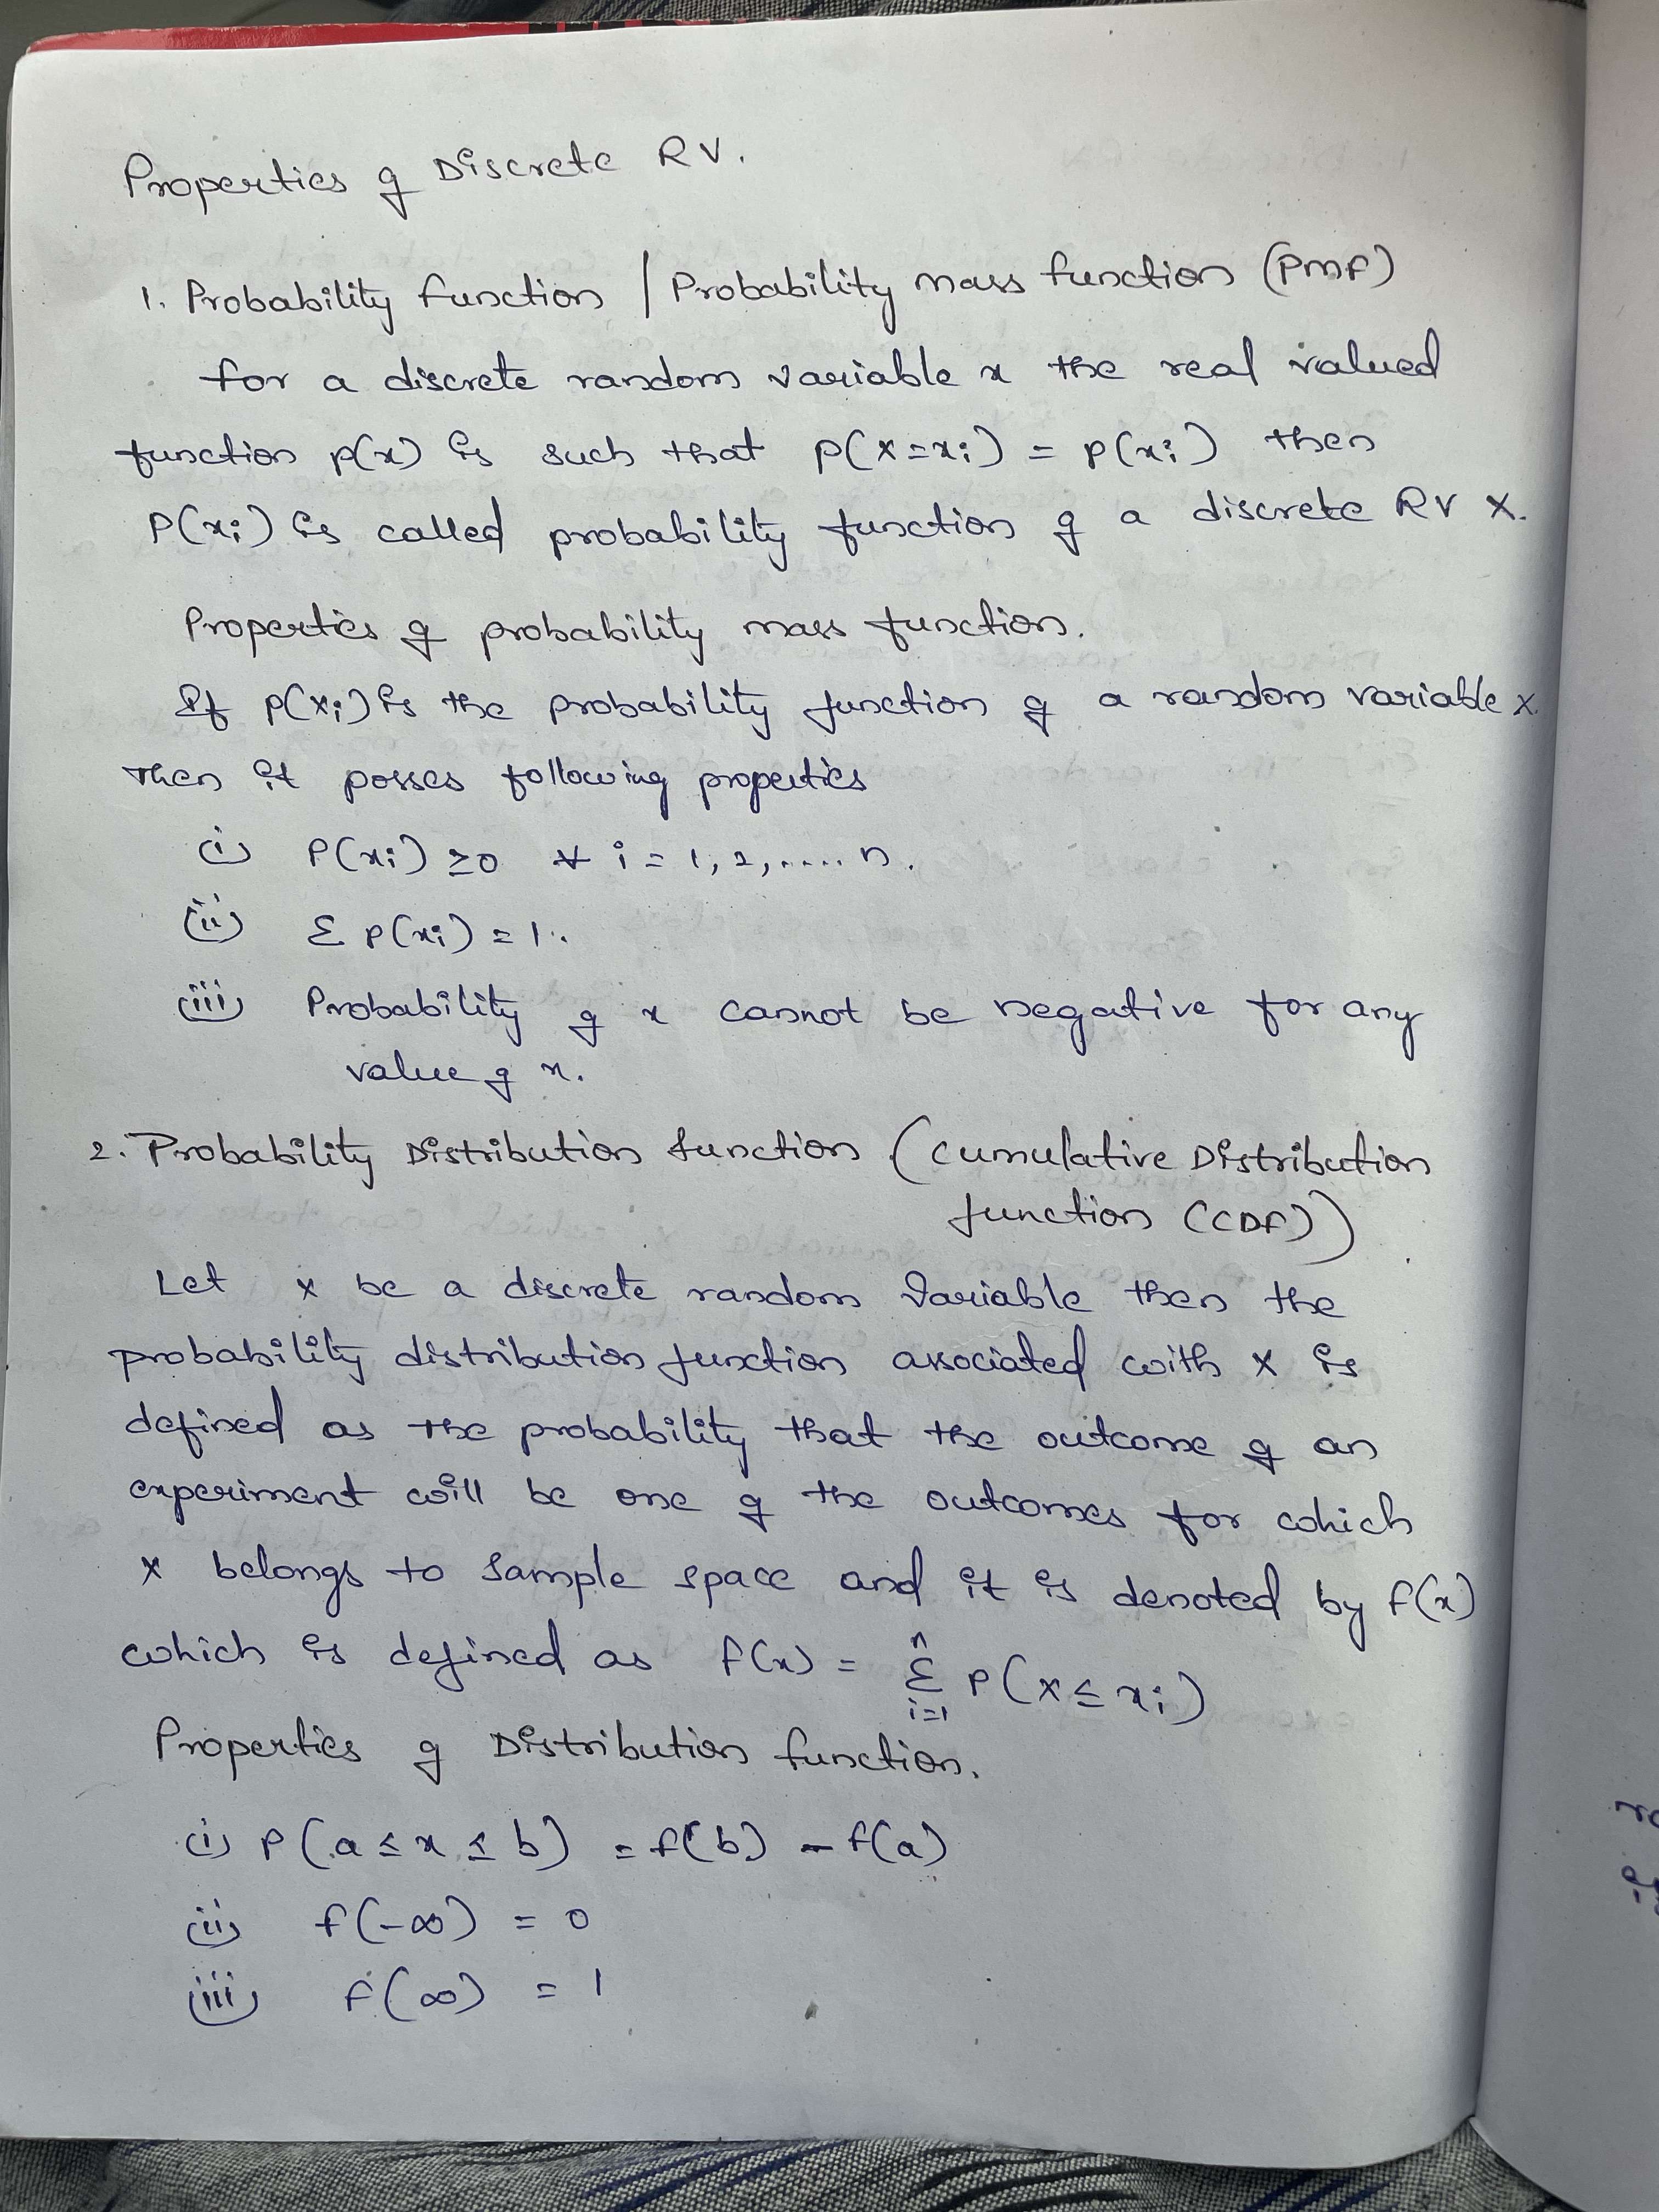 Properties of Discrete RV.
1. Probability function / Probability mass function (PMF)
for a discrete random variable x the real valued
function p(x) is such that p(X=xi) = p(xi) then
P(xi) is called probability function of a discrete RV X.
Properties of probability mass function.
If p(xi) is the probability function of a random variable X.
Then it posses following properties
(i) P(xi) ≥0 ∀ i = 1, 2, ..... n.
(ii) Σ p(xi) = 1.
(iii) Probability of x cannot be negative for any
value of x.
2. Probability Distribution function (Cumulative Distribution
function (CDF))
Let x be a discrete random variable then the
probability distribution function associated with x is
defined as the probability that the outcome of an
experiment will be one of the outcomes for which
x belongs to sample space and it is denoted by F(x)
which is defined as F(x) = n Σ i=1 P(X≤xi)
Properties of Distribution function.
(i) P(a≤x≤b) = F(b) - F(a)
(ii) F(-∞) = 0
(iii) F(∞) = 1